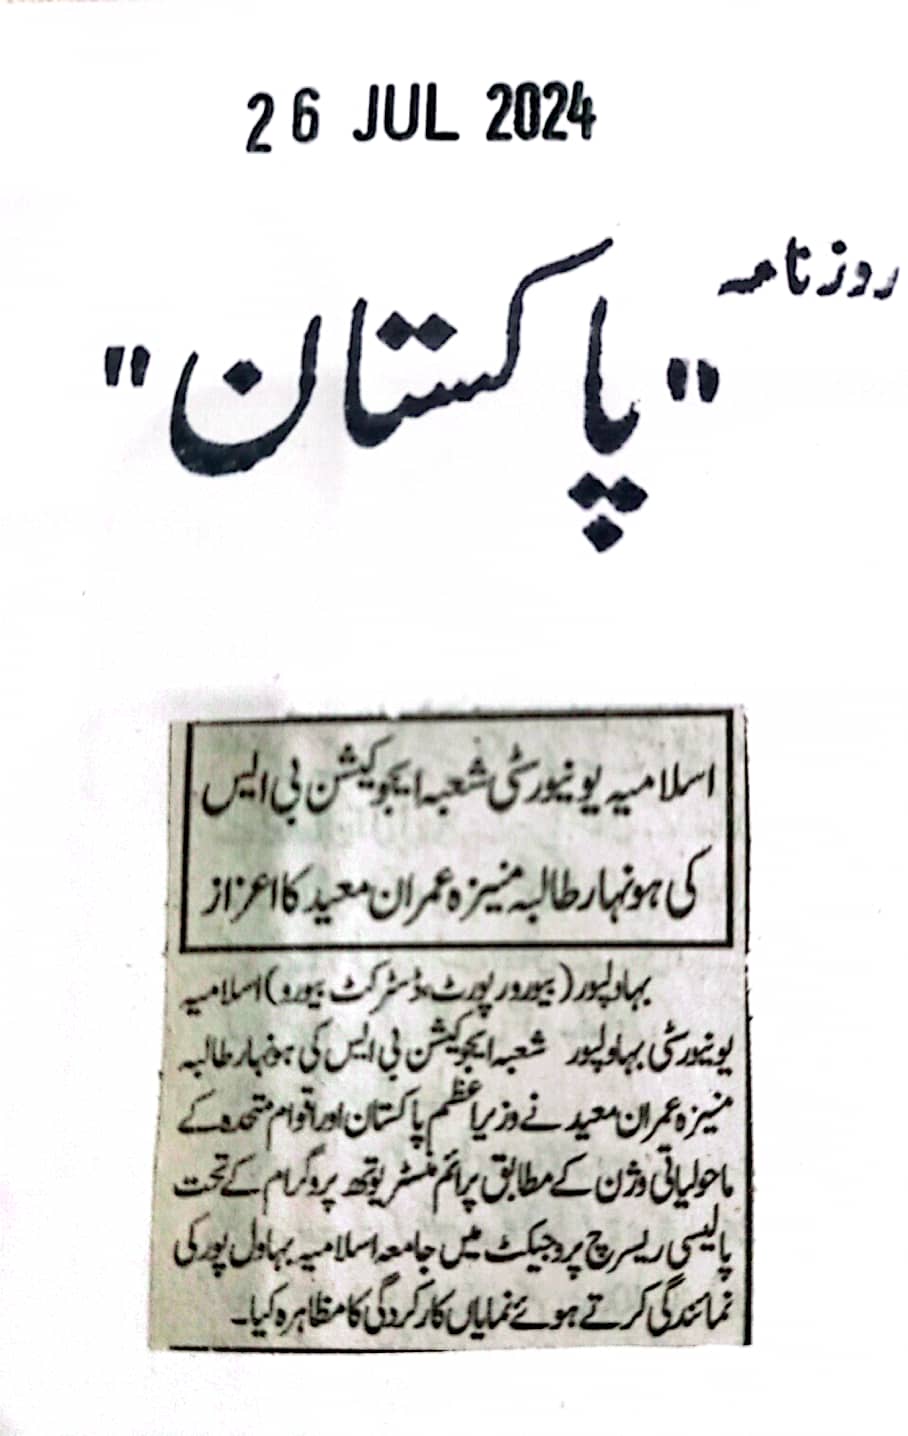 26 JUL 2024
روزنامہ
"پاکستان"
اسلامیہ یونیورسٹی شعبہ ایجوکیشن بی ایس
کی ہونہار طالبہ منیزہ عمران معید کا اعزاز
بہاولپور (بیورورپورٹ، ڈسٹرکٹ بیورو) اسلامیہ
یونیورسٹی بہاولپور شعبہ ایجوکیشن بی ایس کی ہونہار طالبہ
منیزہ عمران معید نے وزیراعظم پاکستان اور اقوام متحدہ کے
ماحولیاتی وژن کے مطابق پرائم منسٹر یوتھ پروگرام کے تحت
پالیسی ریسرچ پروجیکٹ میں جامعہ اسلامیہ بہاول پور کی
نمائندگی کرتے ہوئے نمایاں کارکردگی کا مظاہرہ کیا۔